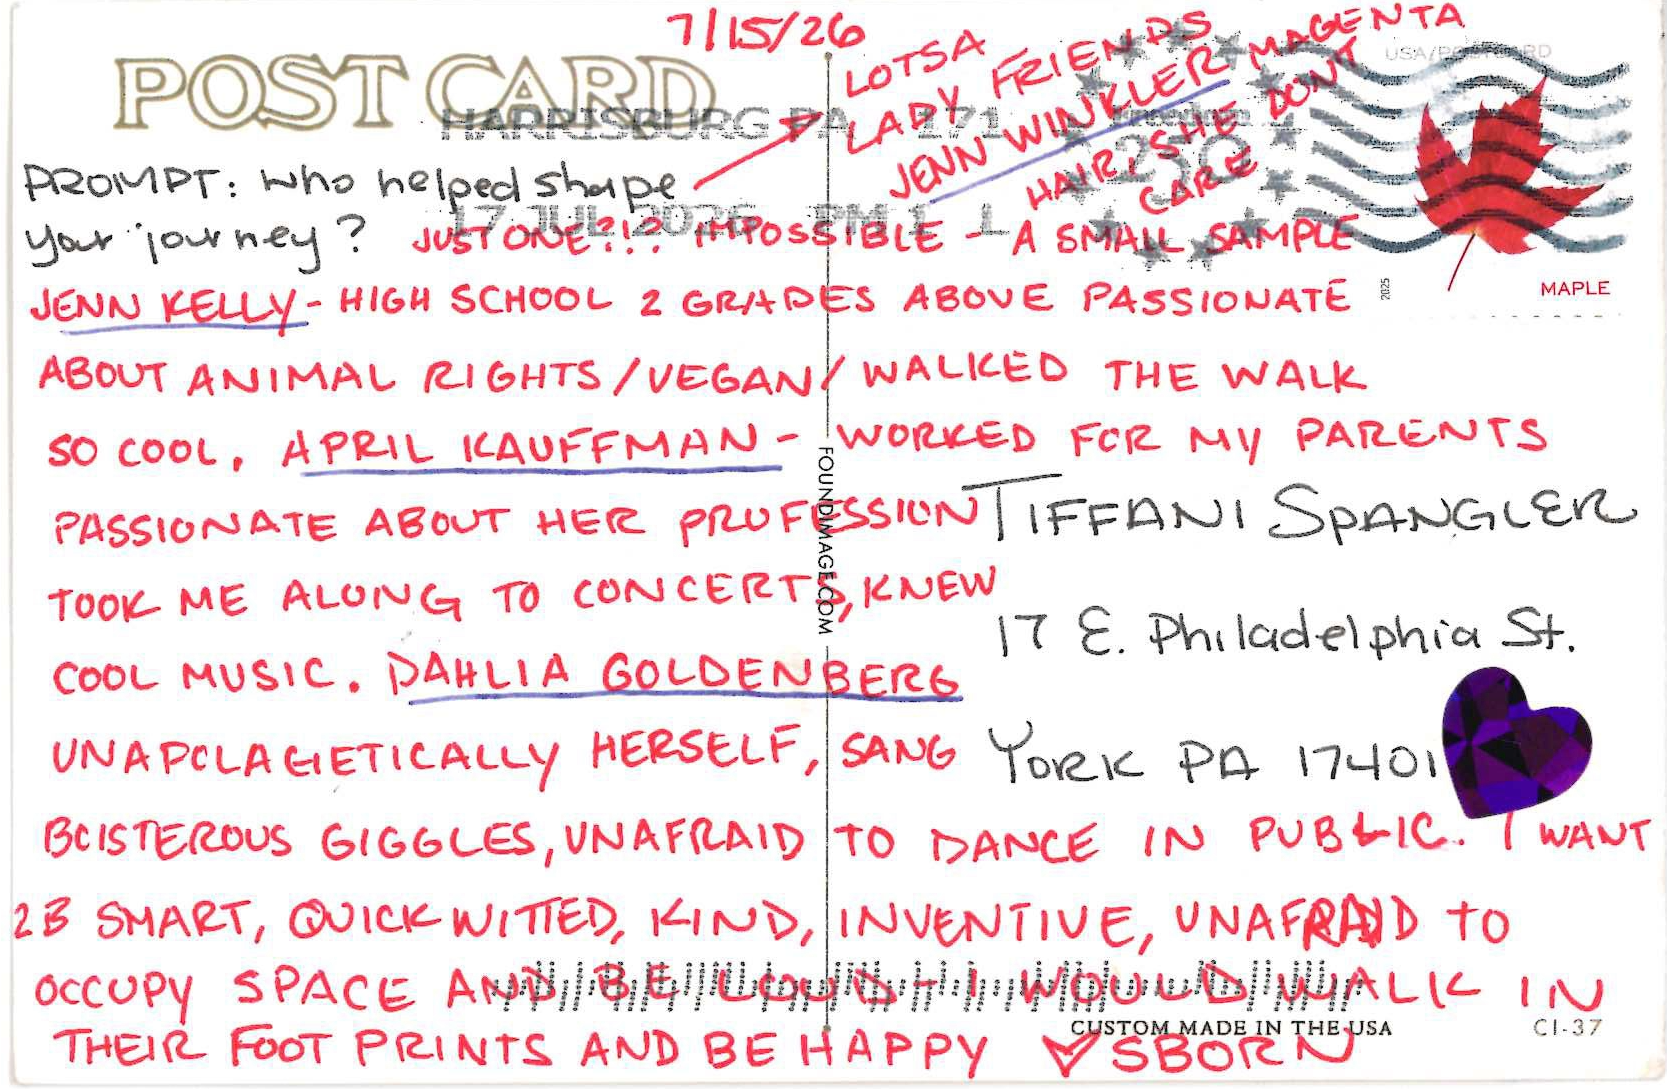 7/15/26
POST CARD
HARRISBURG PA 171
17 JUL 2026 PM 1 L
USA/POSTCARD
250
2025
MAPLE
PROMPT: Who helped shape
your journey?
LOTSA
LADY FRIENDS
JENN WINKLER MAGENTA
HAIR, SHE DON'T
CARE
JUST ONE?!? IMPOSSIBLE - A SMALL SAMPLE
JENN KELLY - HIGH SCHOOL 2 GRADES ABOVE PASSIONATE
ABOUT ANIMAL RIGHTS/VEGAN/WALKED THE WALK
SO COOL. APRIL KAUFFMAN - WORKED FOR MY PARENTS
PASSIONATE ABOUT HER PROFESSION
TOOK ME ALONG TO CONCERTS, KNEW
COOL MUSIC. DAHLIA GOLDENBERG
UNAPOLAGETICALLY HERSELF, SANG
BOISTEROUS GIGGLES, UNAFRAID TO DANCE IN PUBLIC. I WANT
2B SMART, QUICK WITTED, KIND, INVENTIVE, UNAFRAID TO
OCCUPY SPACE AND BE LOUD - I WOULD WALK IN
THEIR FOOT PRINTS AND BE HAPPY ♡ SBORN
TIFFANI SPANGLER
17 E. Philadelphia St.
YORK PA 17401
FOUNDIMAGE.COM
CUSTOM MADE IN THE USA
CI-37